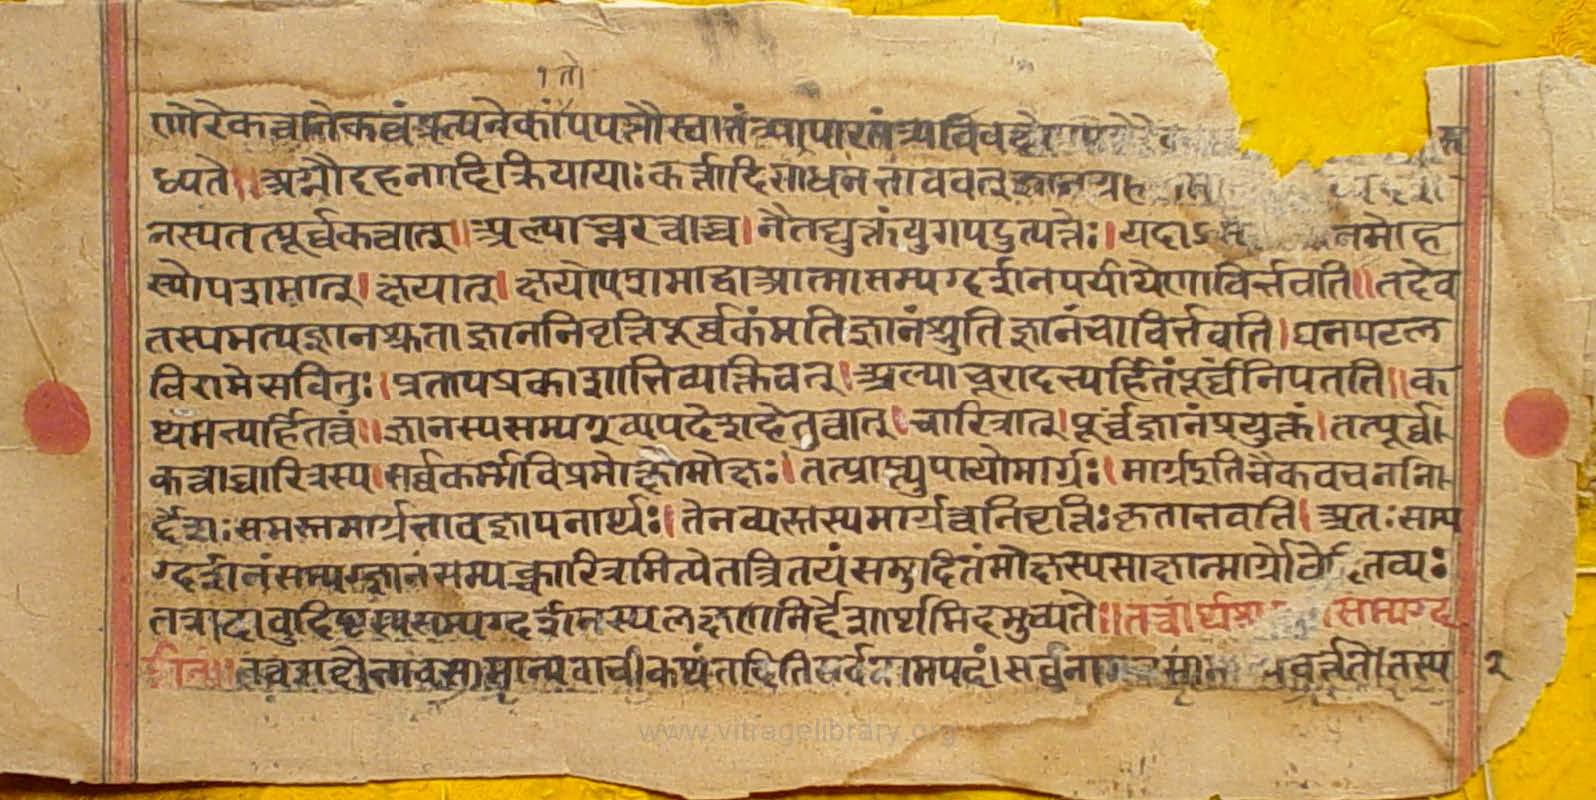 १ तो
णोरेकत्वानेकत्वंप्रत्यनेकांतोपपत्तौस्वातंत्र्यपारतंत्र्यविवक्षो
ध्यते॥अग्नौदहनादिक्रियायाःकर्त्तादिसाधनभाववत्ज्ञानग्रह
नस्यतत्पूर्व्वकत्वात्॥अल्पाच्तरत्वाच्च।नैतद्युक्तंयुगपदुत्पत्तेः।यदाऽ नमोह
स्योपशमात्।क्षयात्।क्षयोपशमाद्वाआत्मासम्यग्दर्शनपर्यायेणाविर्भवति॥तदैव
तस्यमत्यज्ञानश्रुताज्ञाननिवृत्तिपूर्व्वकंमतिज्ञानंश्रुतिज्ञानंचाविर्भवति।घनपटल
विरामेसवितुः।प्रतापप्रकाशाभिव्यक्तिवत्।अल्पाच्तरादभ्यर्हितंपूर्व्वंनिपतति॥क
थमभ्यर्हितत्वं॥ज्ञानस्यसम्यग्व्यपदेशहेतुत्वात्।चारित्रात्।पूर्व्वंज्ञानंप्रयुक्तं।तत्पूर्व्व
कत्वाच्चारित्रस्य।सर्व्वकर्म्मविप्रमोक्षोमोक्षः।तत्प्राप्त्युपायोमार्ग्रः।मार्ग्रइतिचैकवचननि
र्द्देशःसमस्तमार्ग्रभावज्ञापनार्थः।तेनव्यस्तस्यमार्ग्रत्वनिवृत्तिःकृताभवति।अतःसम्य
ग्दर्शनंसम्यग्ज्ञानंसम्यक्चारित्रमित्येतत्त्रितयंसमुदितंमोक्षस्यसाक्षान्मार्ग्रोवेदितव्यः
तत्रादावुदिष्टस्यसम्यग्दर्शनस्यलक्षणनिर्द्देशार्थमिदमुच्यते॥तत्वार्थश्र सम्यग्द
र्शनं॥तत्वशब्दोभावसामान्यवाचीकथंतदितिसर्वनामपदं।सर्व्वना वर्त्तते।तस्य
२
www.vitragelibrary.org